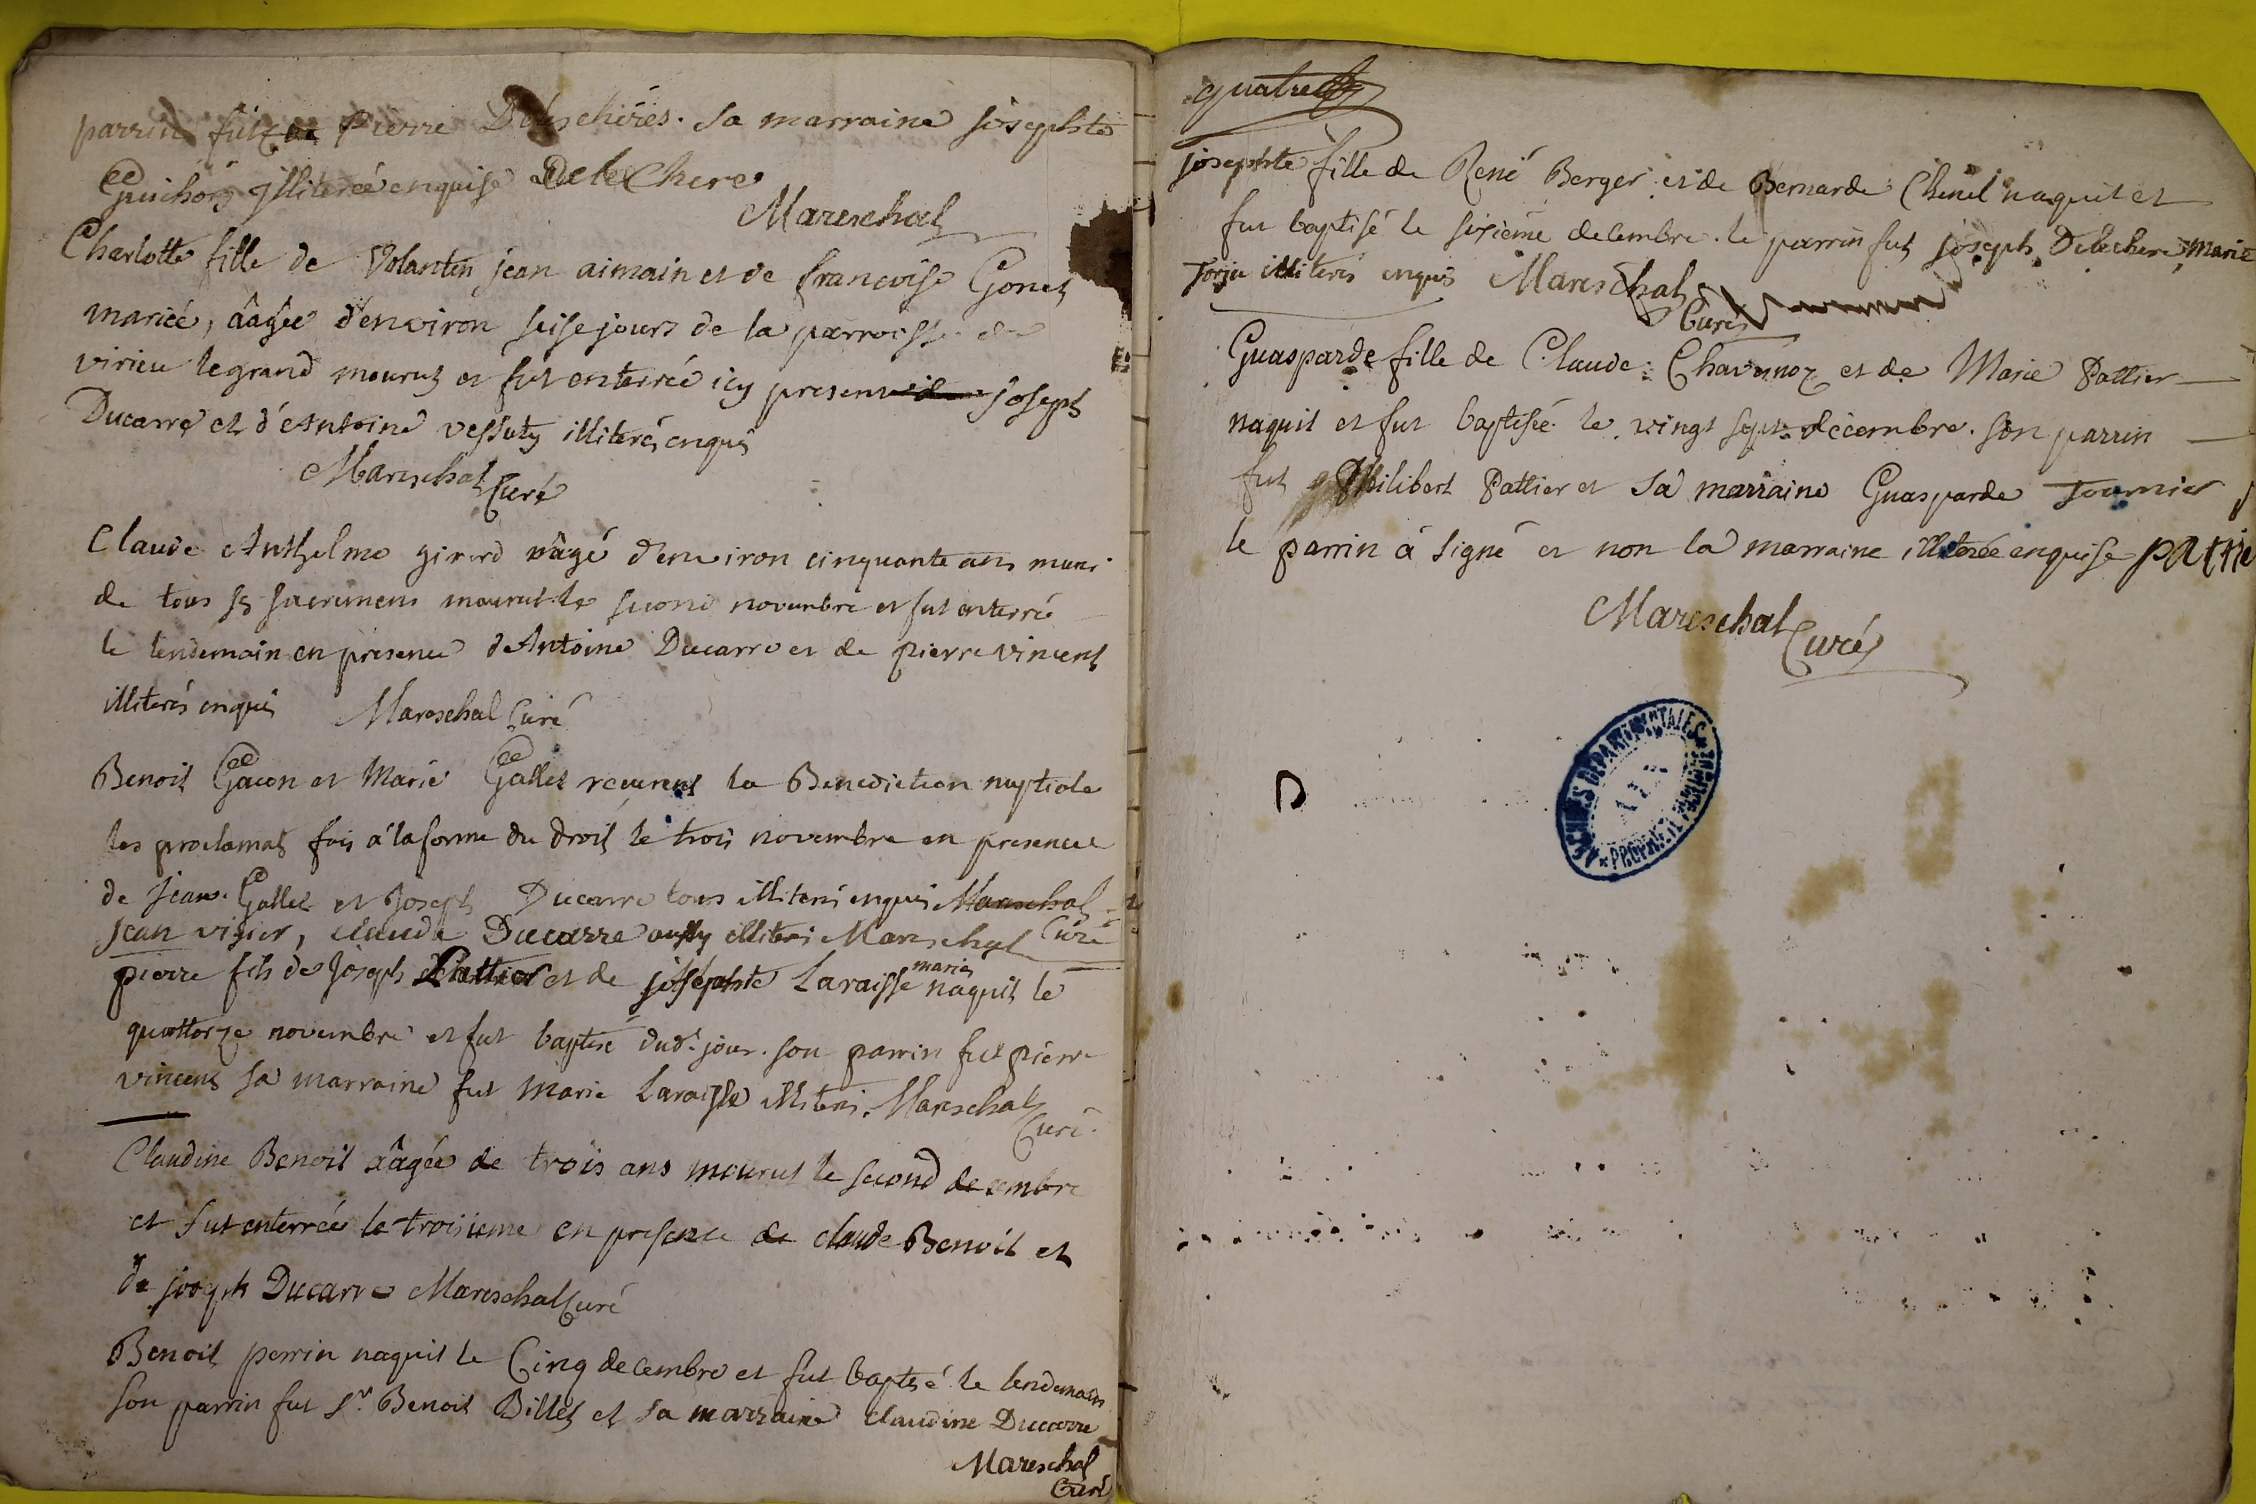 parrin fut Pierre Deleschères. sa marraine josephte
Guichon illiterée enquise Delechere
Mareschal
Charlotte fille de Volantin jean aimain et de francoise Gonet
mariée, âagée d'environ seise jours de la parroisse de
virieu le grand mourut et fut enterrée icy present joseph
Ducarre et d'Antoine vessuty illiterés enquis
Mareschal Curé
Claude Anthelme girerd âagé d'environ cinquante ans muni
de tous ses sacremens mourut le second novembre et fut enterré
le lendemain en presence d'Antoine Ducarre et de pierre vincent
illiterés enquis Mareschal Curé
Benoit Gacon et Marie Gallet reçurent la Benediction nuptiale
les proclamats fais à la forme du droit le trois novembre en presence
de jean Gallet et Joseph Ducarre tous illiterés enquis Mareschal
jean vigier, claude Ducarre aussy illiterés Mareschal Curé
pierre fils de Joseph Pattier et de josephte Laraisse mariés naquit le
quattorze novembre et fut baptisé dud. jour. son parrin fut pierre
vincent sa marraine fut Marie Laraisse illiterés. Mareschal
Curé.
Claudine Benoit âagée de trois ans mourut le second decembre
et fut enterrée le troisieme en presence de claude Benoit et
de joseph Ducarre Mareschal Curé
Benoit perrin naquit le Cinq decembre et fut baptisé le lendemain
son parrin fut Sr. Benoit Billet et sa marraine claudine Ducarre
Mareschal
Curé
quatre
josephte fille de René Berger et de Bernarde Chenel naquit et
fut baptisé le sixième decembre. le parrin fut joseph Delechere, Marie
Torju illiterés enquis Mareschal
Curé
Guasparde fille de Claude Chavanoz et de Marie Pattier
naquit et fut baptisée le vingt sept decembre. son parrin
fut Philibert Pattier et sa marraine Guasparde Tournier
le parrin à signé et non la marraine illiterée enquise pattie
Mareschal
Curé
ARCHIVES DÉPARTEMENTALES
AIN
PROPRIÉTÉ PUBLIQUE